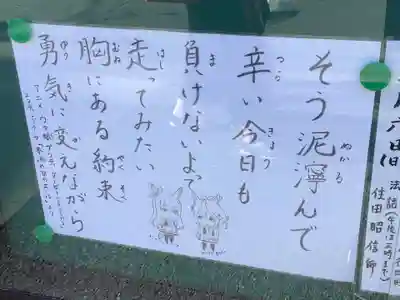 そう泥濘んで
ぬかる
辛い今日も
つら
きょう
負けないよって
ま
走ってみたい
はし
胸にある約束
むね
やくそく
勇気に変えながら
ゆう
き
か
六日
法話
住田 昭信 師